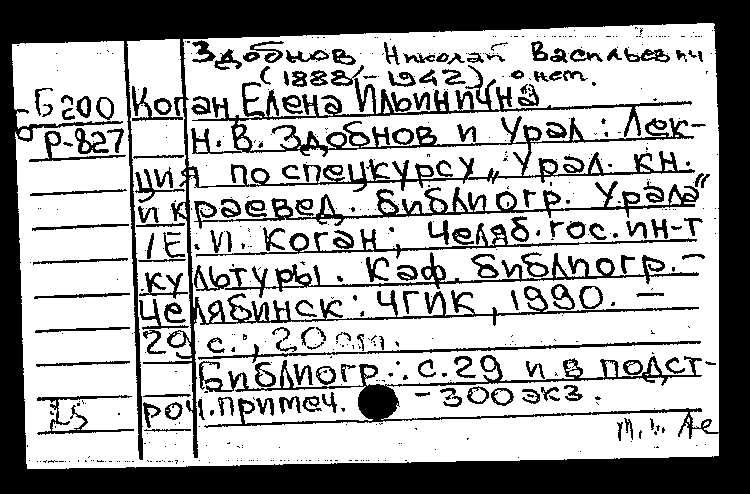 Здобнов, Николай Васильевич
(1888-1942), о нем.
Б200 Коган, Елена Ильинична.
Р-827 Н. В. Здобнов и Урал : Лек-
ция по спецкурсу „Урал. кн.
и краевед. библиогр. Урала"
/Е. И. Коган; Челяб. гос. ин-т
культуры. Каф. библиогр. -
Челябинск : ЧГИК, 1990. -
29 с.; 20 см.
Библиогр.: с.29 и в подст-
25 роч. примеч. - 300 экз.